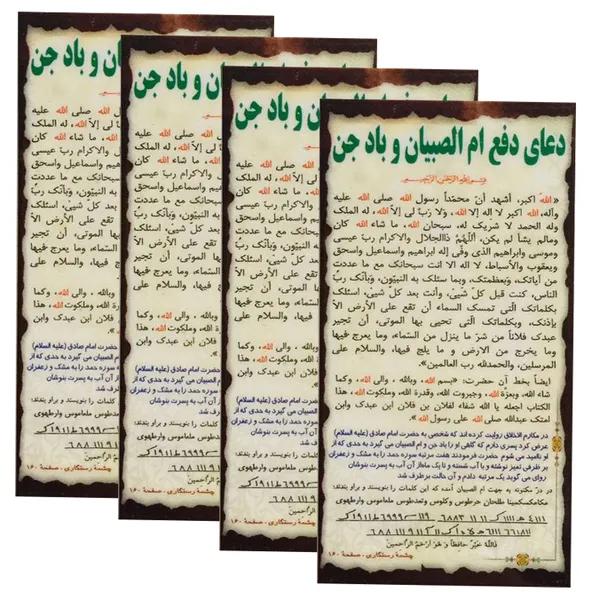 دعای دفع ام الصبیان و باد جن
«الله اکبر، أشهد أنّ محمّداً رسول الله صلی الله علیه
وآله، الله اکبر لا إله إلّا الله، ولا رَبّ لی إلّا الله، له الملک
وله الحمد لا شریک له، سبحان الله، ما شاء الله کان
ومالم یشأ لم یکن، اللّهمّ ذاالجلال والاکرام ربّ عیسی
وموسی وابراهیم الذی وفّی إله ابراهیم واسماعیل واسحق
ویعقوب والأسباط، لا اله الا انت سبحانک مع ما عددت
من آیاتک، وبعظمتک، وبما سئلک به النبیّون، وبأنک ربّ
الناس، کنت قبل کلّ شیئ، وأنت بعد کلّ شیئ، اسئلک
بکلماتک الّتی تمسک السماء أن تقع علی الأرض الاّ
بإذنک، وبکلماتک الّتی تحیی بها الموتی، أن تجیر
عبدک فلاناً من شرّ ما ینزل من السّماء، وما یعرج فیها
وما یخرج من الارض و ما یلج فیها، والسلام علی
المرسلین، والحمدلله رب العالمین».
ایضاً بخطّ آن حضرت: «بسم الله، وبالله، والی الله، وکما
شاء الله، وبعزة الله، وجبروت الله، وقدرة الله، وملکوت الله، هذا
الکتاب اجعله یا الله شفاء لفلان بن فلان ابن عبدک وابن
امتک عبدالله صلی الله علی رسول الله».
در مکارم الاخلاق روایت کرده اند که شخصی به حضرت امام صادق (علیه السلام)
عرض کرد پسری دارم که گاهی او را باد جن و ام الصبیان می گیرد به حدی که از
او ناامید می شوم حضرت فرمودند هفت مرتبه سوره حمد را به مشک و زعفران
بر ظرفی تمیز نوشته و با آب شسته و تا یک ماه از آن آب به پسرت بنوشان
روای می گوید یک مرتبه دادم و آن حالت برطرف شد
در درّ مکنونه به جهت ام الصبیان آمده که این کلمات را بنویسند و براو بندند:
فَاللهُ خَیْرٌ حافِظاً وَ هُوَ اَرْحَمُ الرّاحِمینَ
چشمهٔ رستگاری - صفحهٔ ۱۶۰